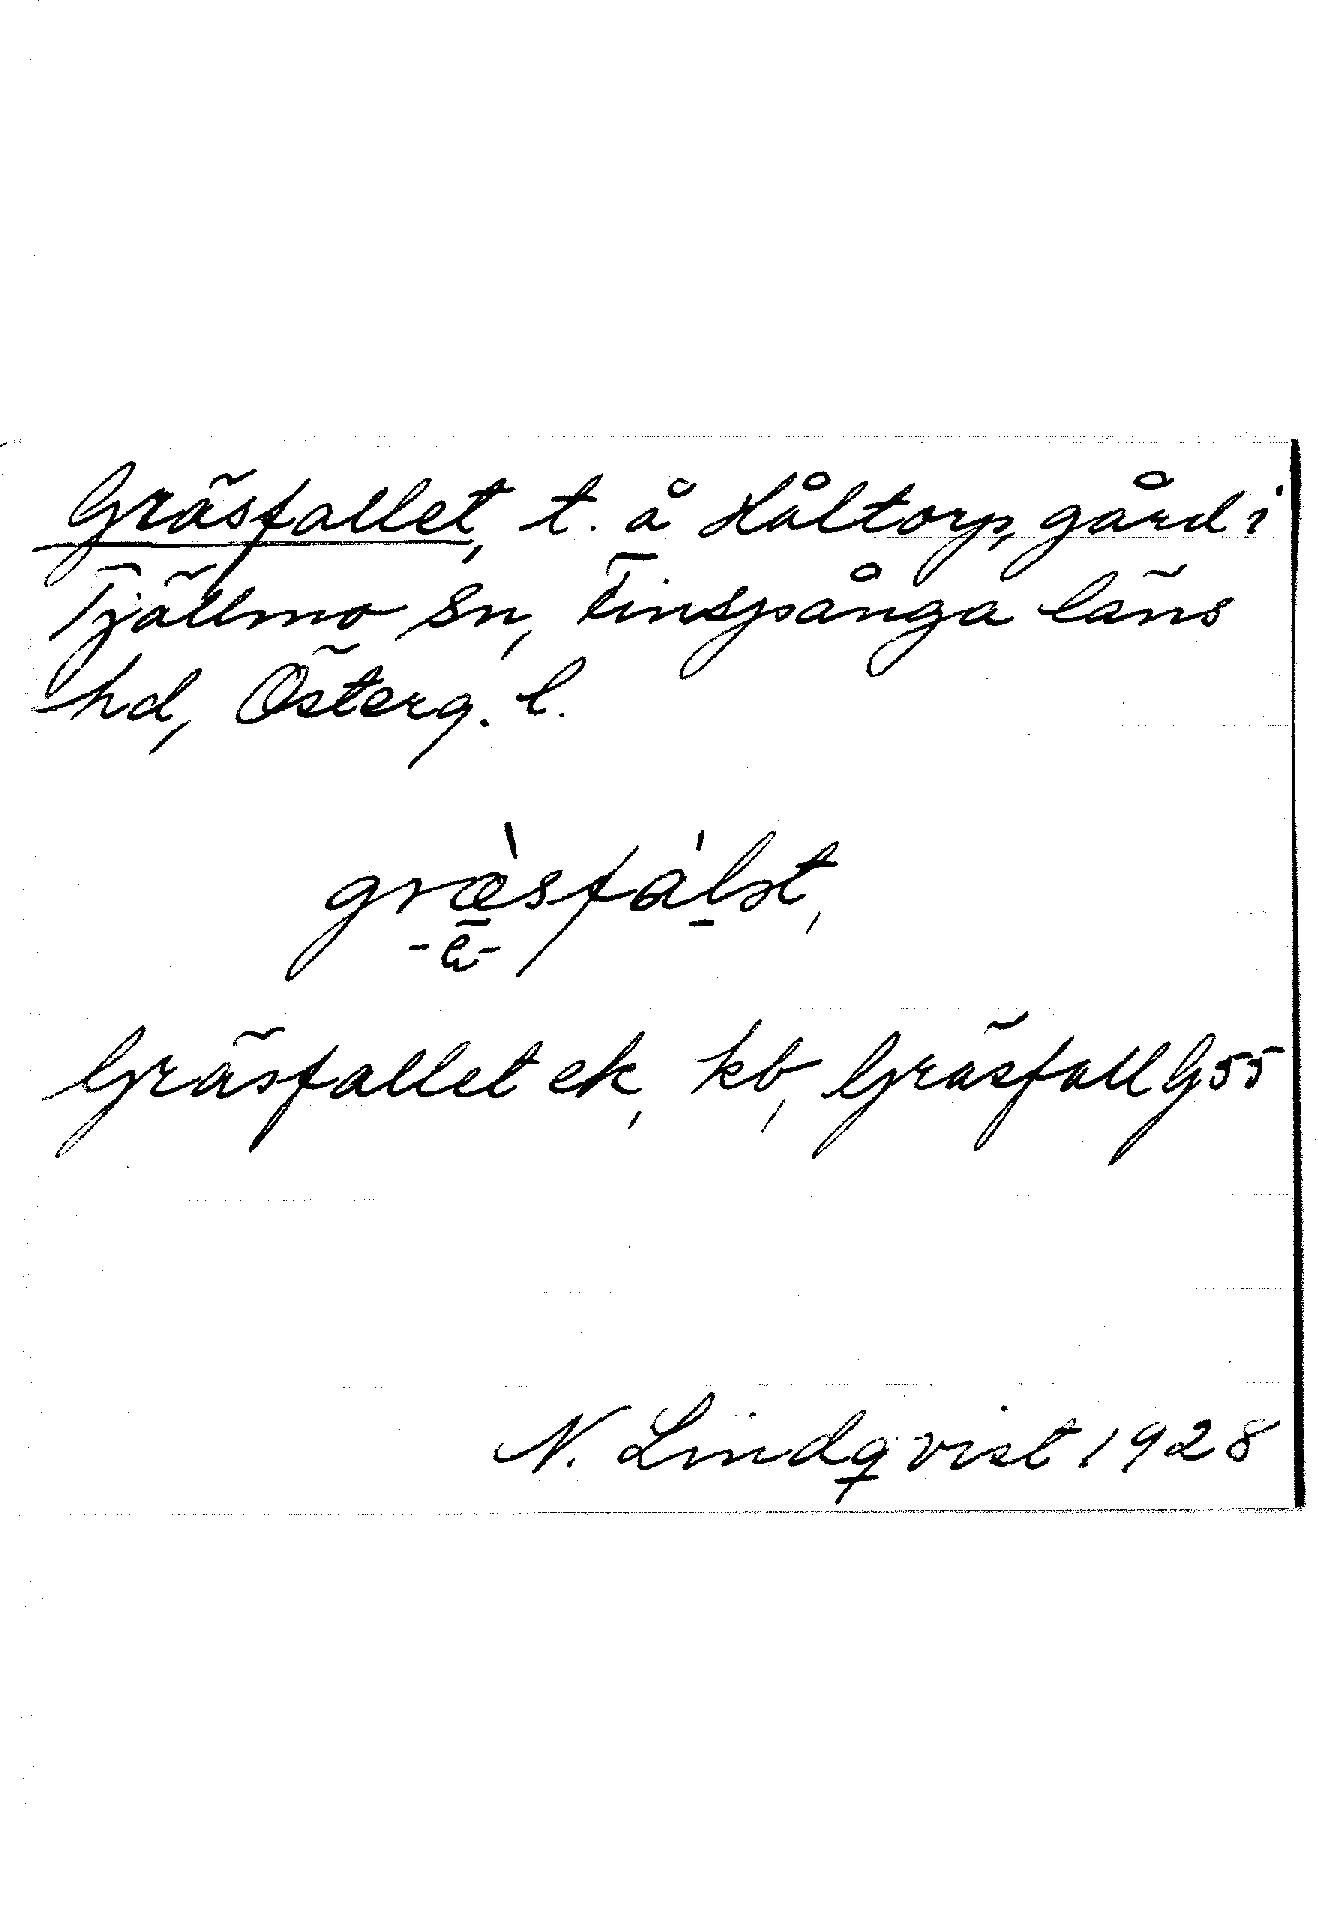 Gräsfallet, t. å Håltorp, gård i
Tjällmo sn, Finspånga läns
hd, Österg. l.
græ̀sfálət,
-e-
Gräsfallet ek, kb, Gräsfall G55
N. Lindqvist 1928